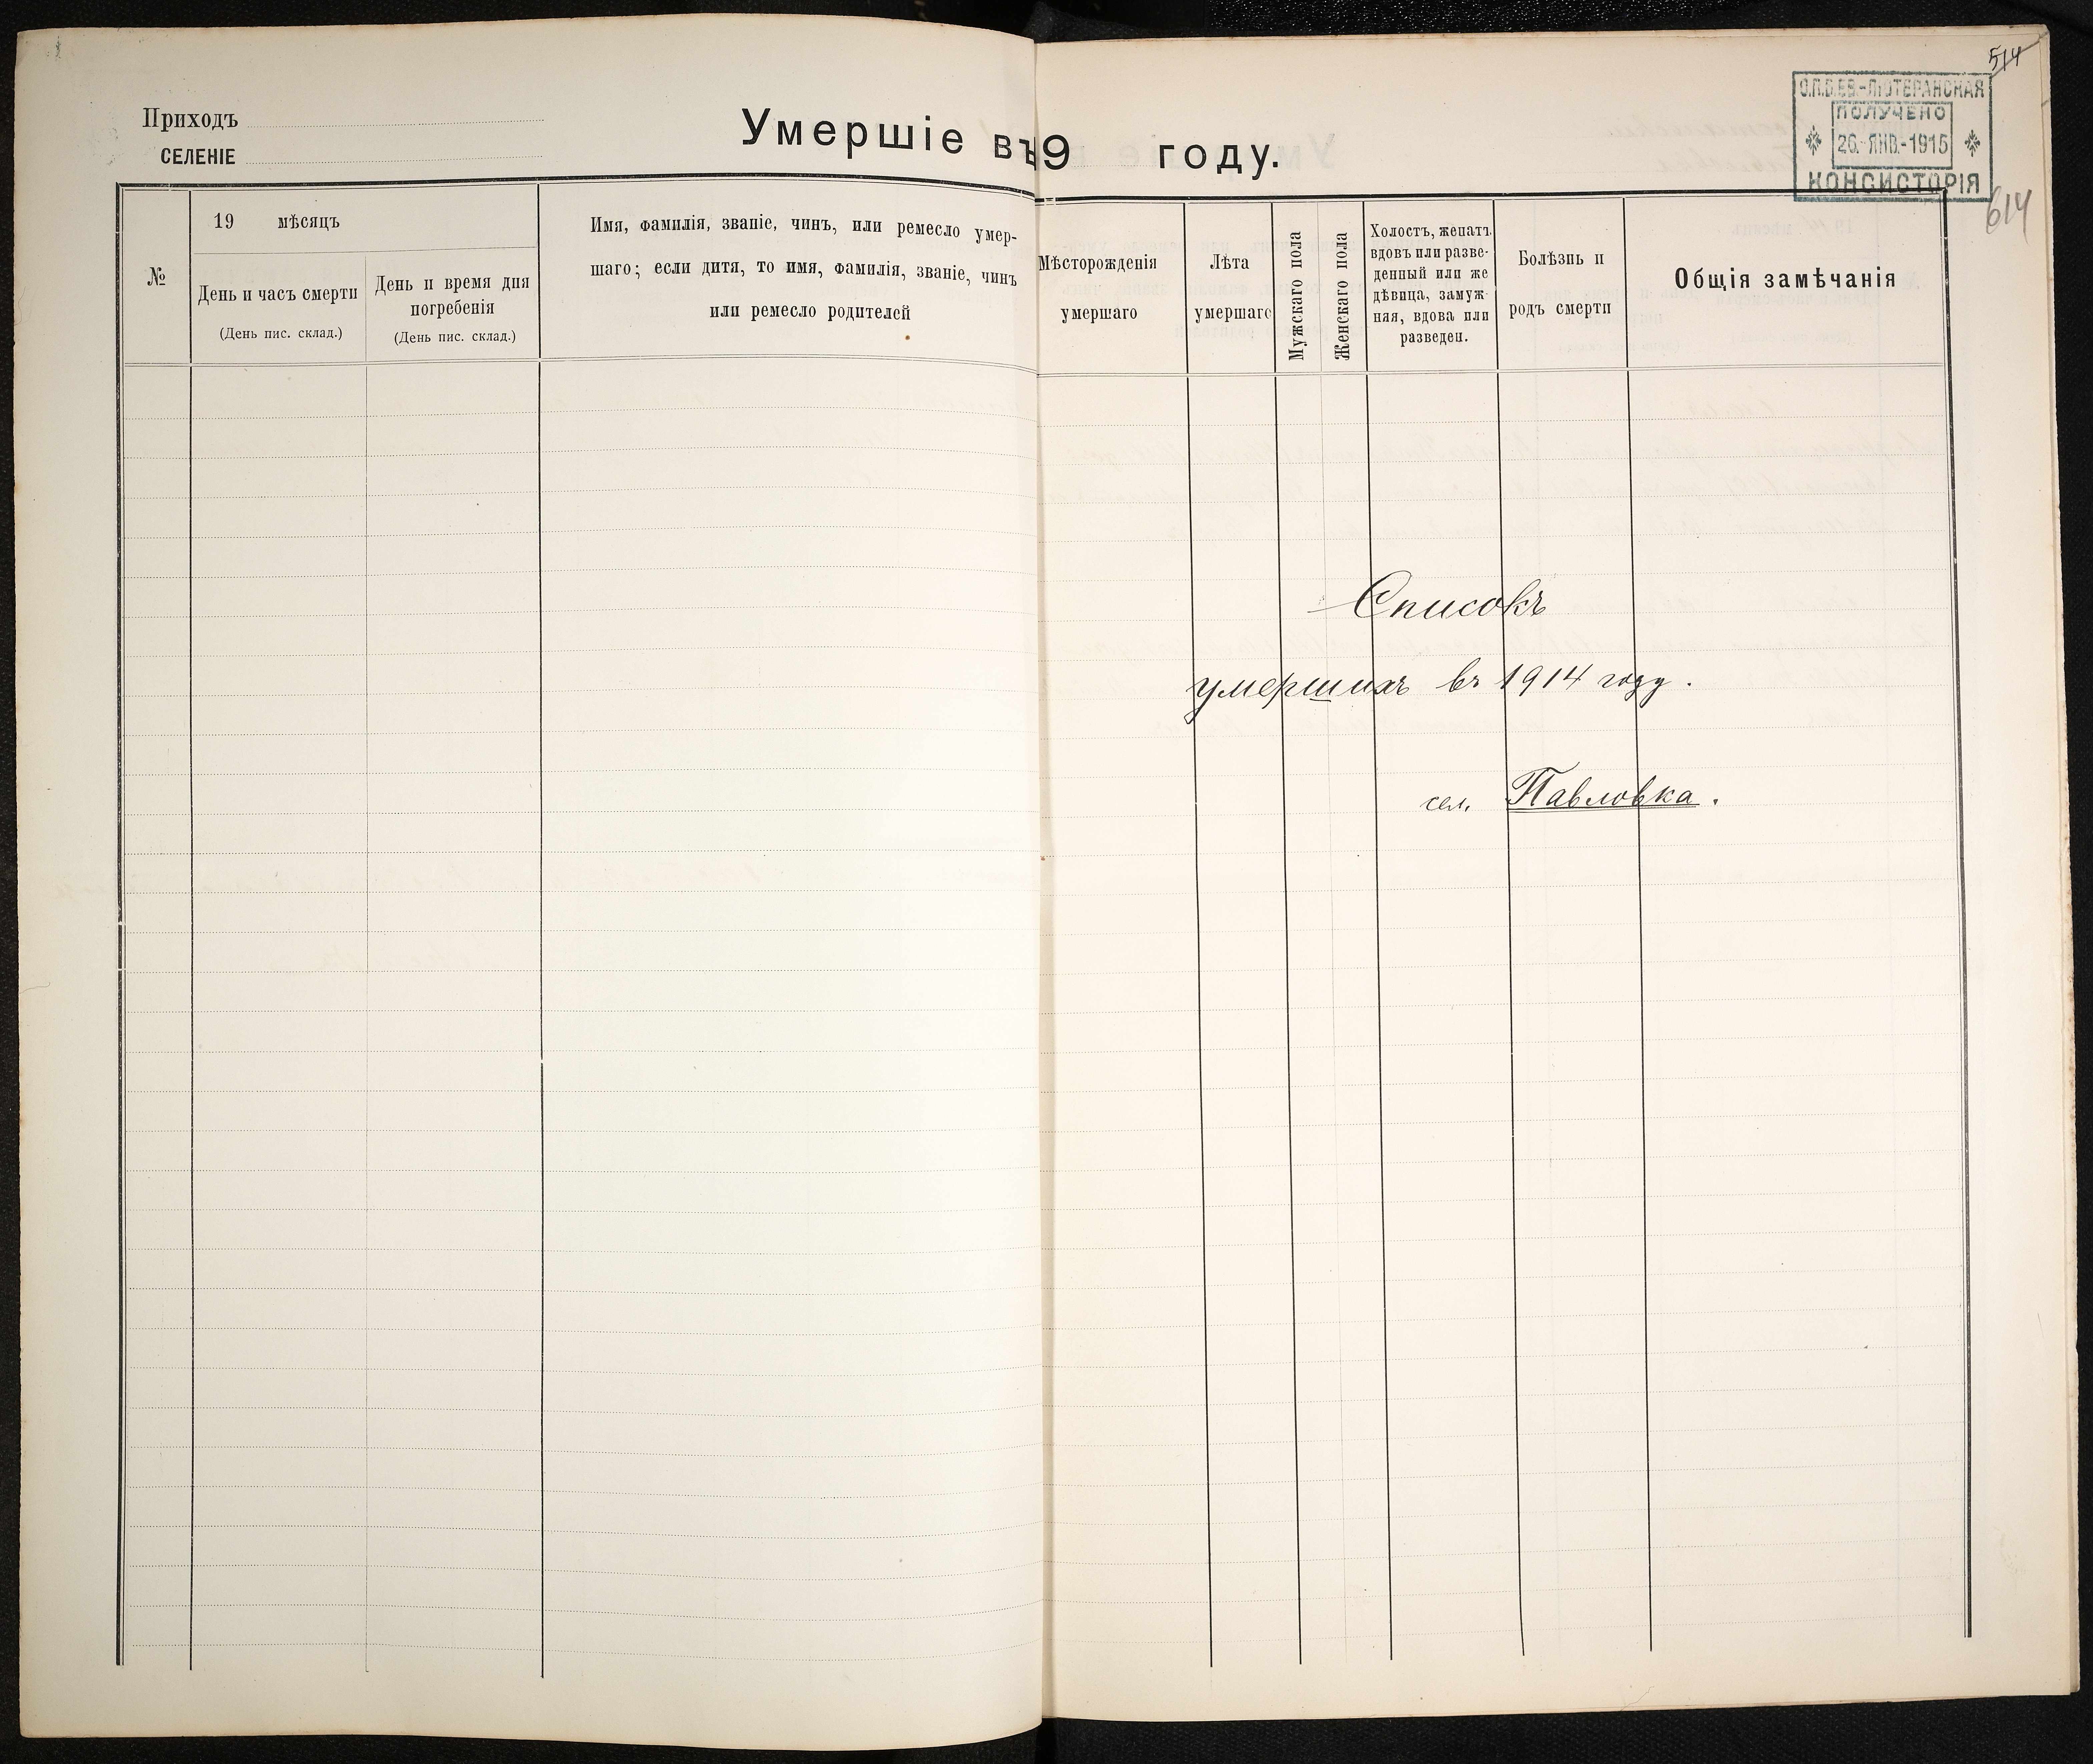 Приходъ
СЕЛЕНІЕ
Умершіе въ
№
19 мѣсяцъ
День и часъ смерти
(День пис. склад.)
День и время дня
погребенія
(День пис. склад.)
Имя, фамилія, званіе, чинъ, или ремесло умер-
шаго; если дитя, то имя, фамилія, званіе, чинъ
или ремесло родителей
514
С.П.Б.ЕВ.-ЛЮТЕРАНСКАЯ
ПОЛУЧЕНО
26.-ЯНВ.-1915
КОНСИСТОРІЯ
614
9 году.
Мѣсторожденія
умершаго
Лѣта
умершаго
Мужскаго пола
Женскаго пола
Холостъ, женатъ
вдовъ или разве-
денный или же
дѣвица, замуж-
няя, вдова или
разведен.
Болѣзнь и
родъ смерти
Общія замѣчанія
Списокъ
умершихъ въ 1914 году.
сел. Павловка.